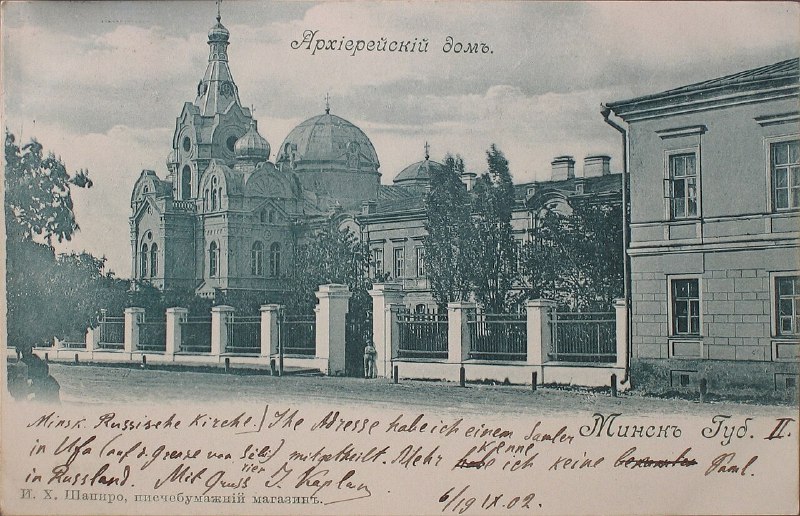 Архіерейскій домъ.
Минскъ Губ. II.
Minsk. Russische Kirche.) Ihre Adresse habe ich einem Samler
in Ufa (auf d. Grenze von Sib.) mitgetheilt. Mehr kenne ich keine
in Russland. Mit Gruss I. Kaplan
6/19 IX. 02.
И. Х. Шапиро, писчебумажній магазинъ.